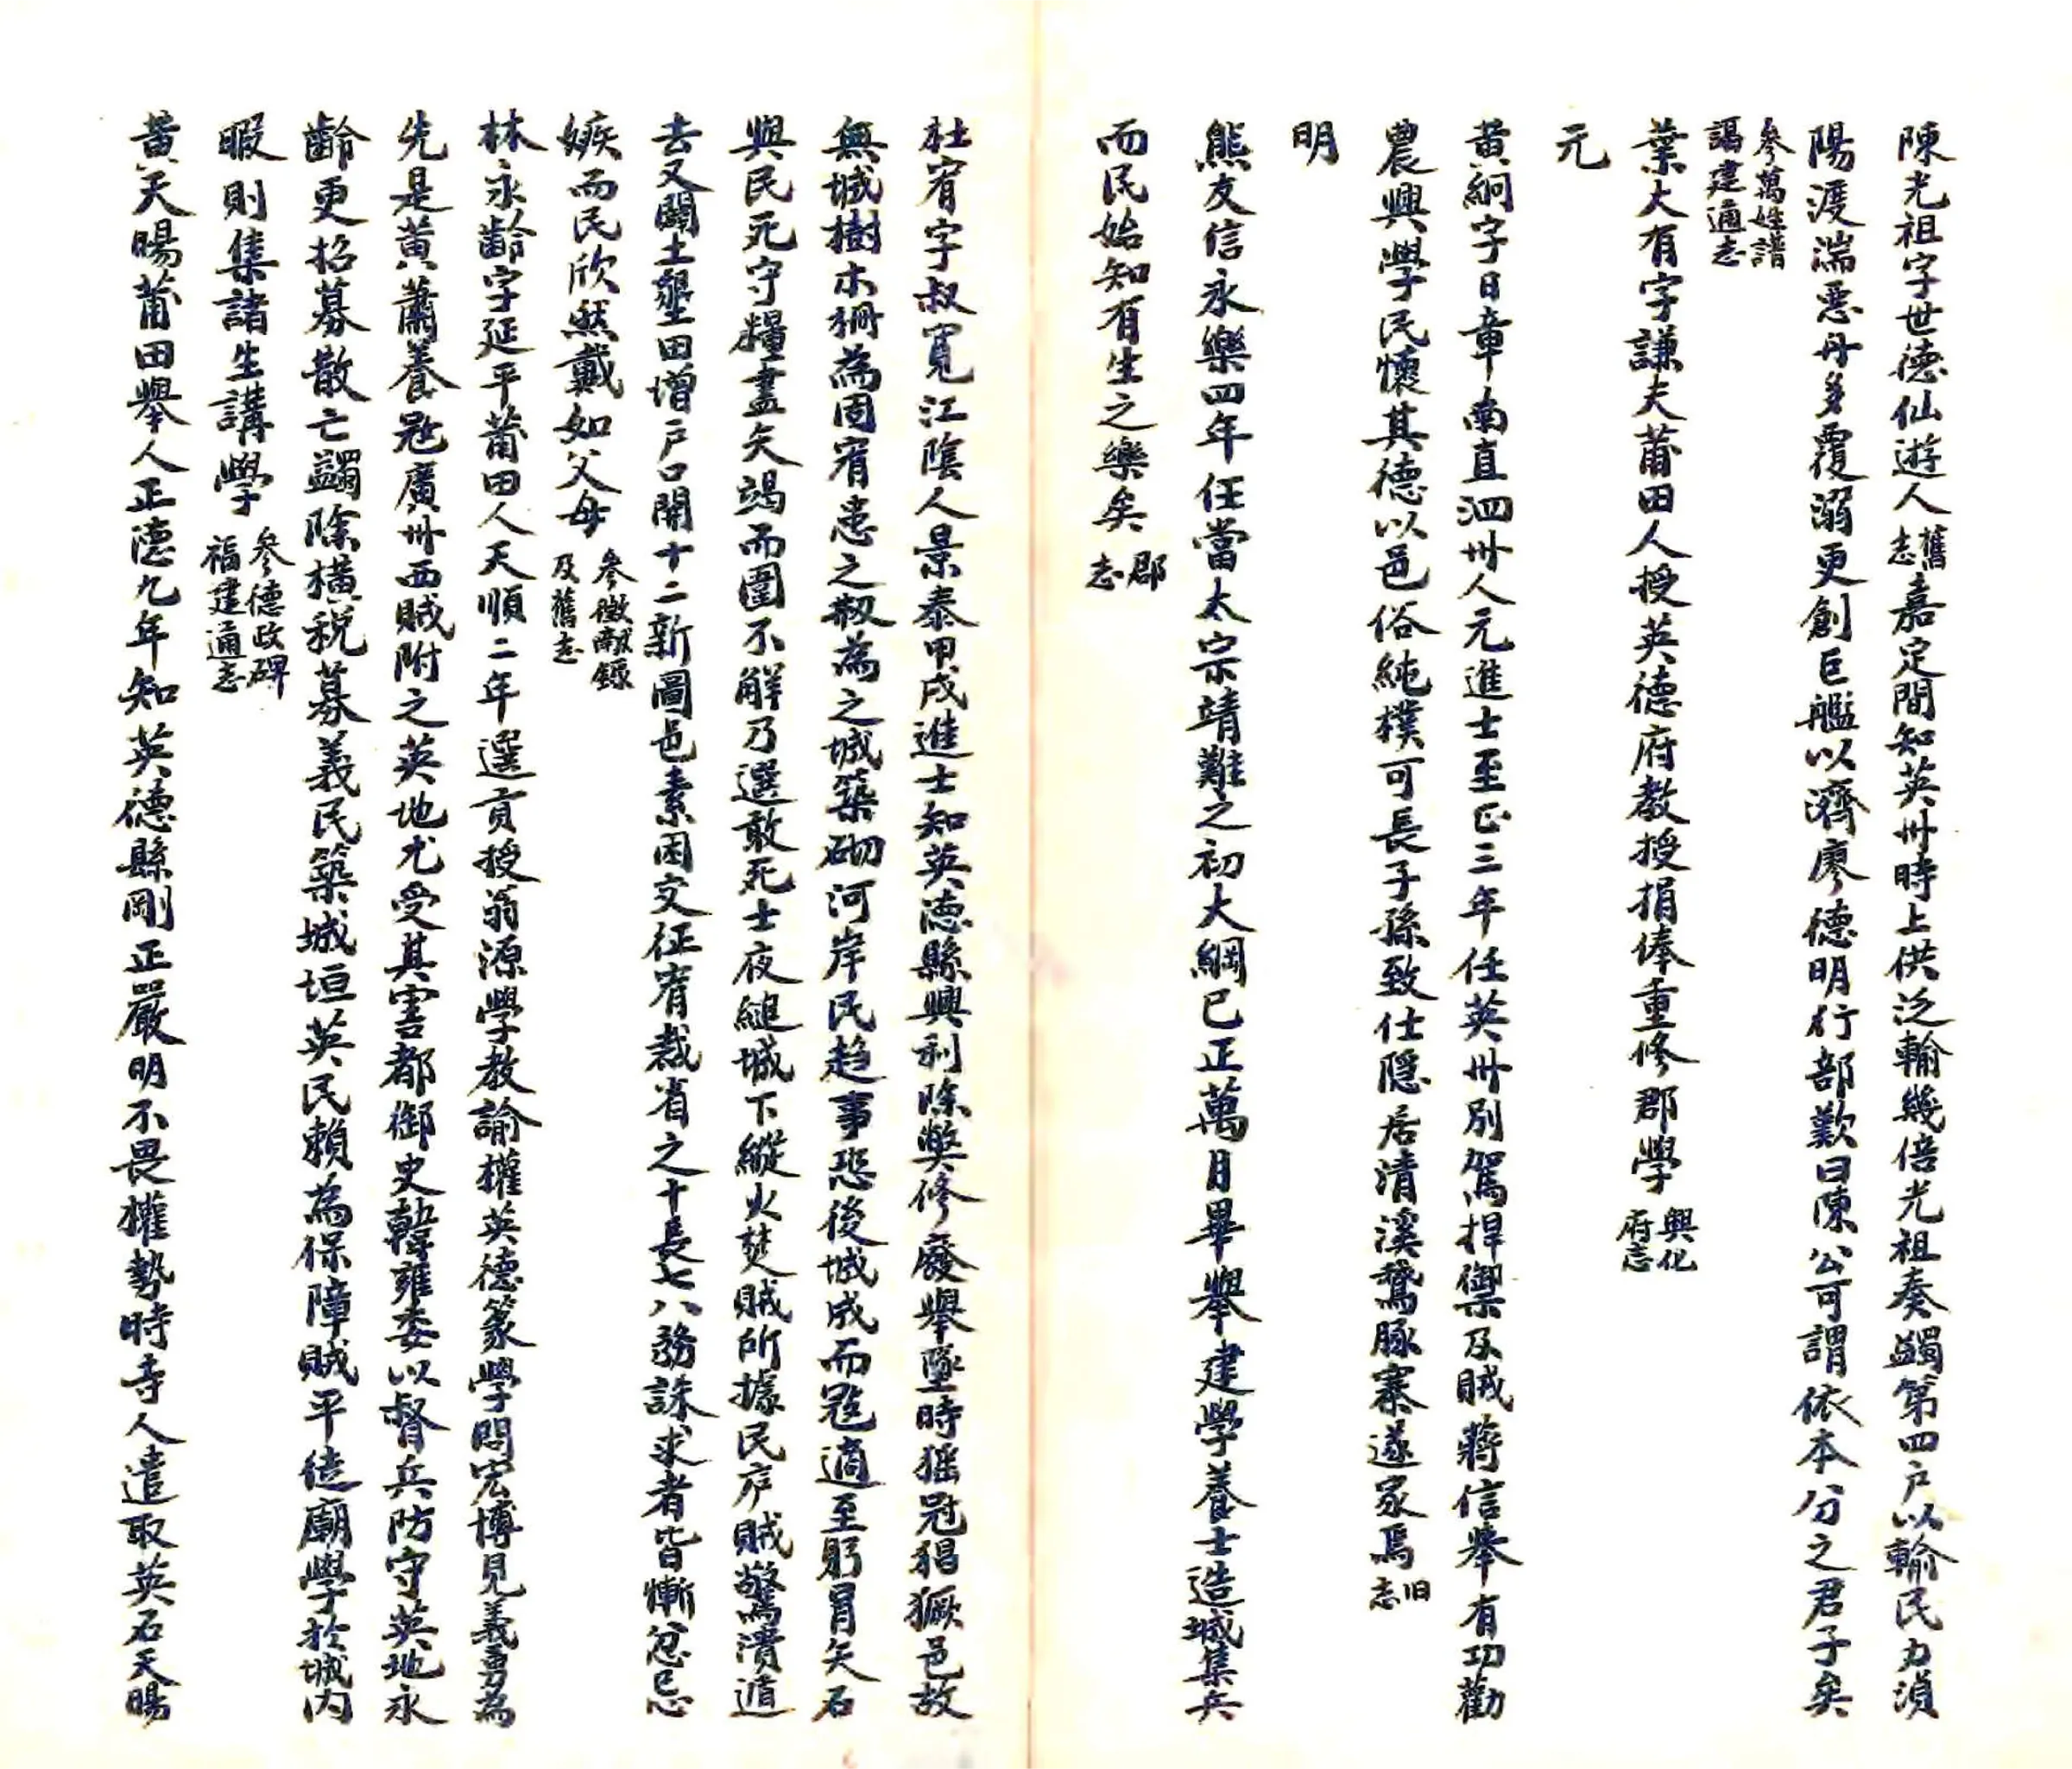 陳光祖字世德仙遊人舊志嘉定間知英州時上供泛輸幾倍光祖奏蠲第四戶以輸民力湞
陽渡湍惡舟多覆溺更創巨艦以濟廖德明行部歎曰陳公可謂依本分之君子矣
參萬姓譜
謁建通志
葉大有字謙夫莆田人授英德府教授捐俸重修郡學興化府志
元
黃絅字日章南直泗州人元進士至正三年任英州別駕捍禦及賊蔣信舉有功勸
農興學民懷其德以邑俗純樸可長子孫致仕隱居清溪鵞豚寨遂家焉旧志
明
熊友信永樂四年任當太宗靖難之初大綱已正萬目畢舉建學養士造城集兵
而民始知有生之樂矣郡志
杜宥字叔寬江陰人景泰甲戌進士知英德縣興利除弊修廢舉墜時猺冦猖獗邑故
無城樹木柵為固宥患之叝為之城築砌河岸民趋事恐後城成而冦適至躬冒矢石
與民死守糧盡矢竭而圍不解乃選敢死士夜縋城下縱火焚賊所據民庐賊驚潰遁
去又闢土墾田增戶口開十二新圖邑素困文征宥裁省之十長七八務誅求者皆慚忿忌
嫉而民欣然戴如父母參徵献錄及舊志
林永齡字延平莆田人天順二年選貢授翁源學教諭權英德篆學問宏博見義勇為
先是黃蕭養冦廣州西賊附之英地尤受其害都御史韓雍委以督兵防守英地永
齡更招募散亡蠲除橫税募義民築城垣英民賴為保障賊平徒廟學於城内
暇則集諸生講學參德政碑福建通志
黃天暘莆田舉人正德九年知英德縣剛正嚴明不畏權勢時寺人遣取英石天暘